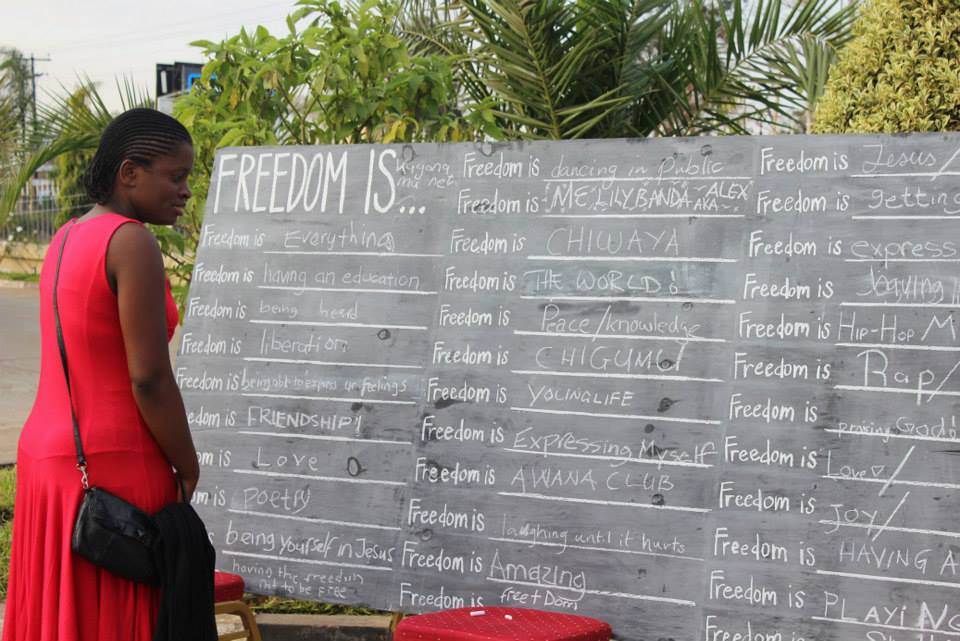 FREEDOM IS...
Freedom is Everything
Freedom is having an education
Freedom is being heard
Freedom is liberation
Freedom is being able to express ur feelings
edom is FRIENDSHIP!
om is Love
m is poetry
being yourself in Jesus
having the freedom
not to be free
Freedom is dancing in Public
Freedom is ME, LILY BANDA - ALEX
AKA
Freedom is CHIWAYA
Freedom is THE WORLD!
Freedom is Peace/knowledge
Freedom is CHIGUMU
Freedom is YOLINGLIFE
Freedom is Expressing Myself
Freedom is AWANA CLUB
Freedom is laughing until it hurts
Freedom is Amazing
Freedom is freeDom
Freedom is Jesus/
Freedom is getting
Freedom is express
Freedom is
Freedom is HIP-HOP M
Freedom is Rap/
Freedom is praising God
Freedom is Love/
Freedom is Joy/
Freedom is HAVING A
Freedom is PLAYING
Freedom is